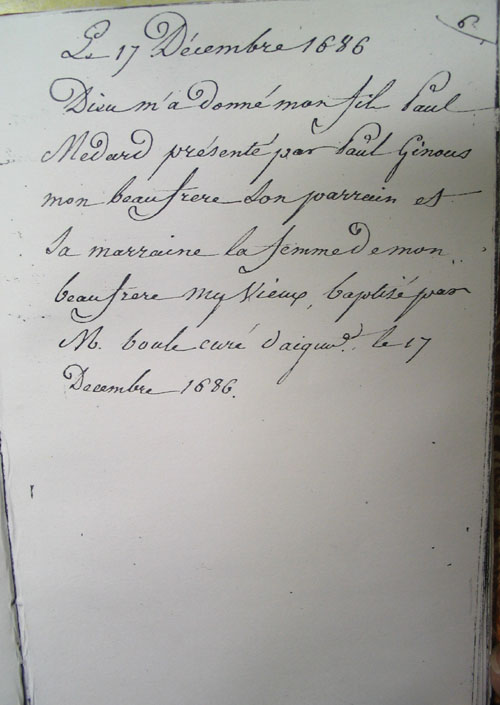 6
Le 17 Décembre 1686
Dieu m'a donné mon fil Paul
Medard présenté par Paul Ginous
mon beaufrere son parrain et
sa marraine la femme de mon
beaufrere My Vieux, baptisé par
M. boule curé d'aigund. le 17
Decembre 1686.